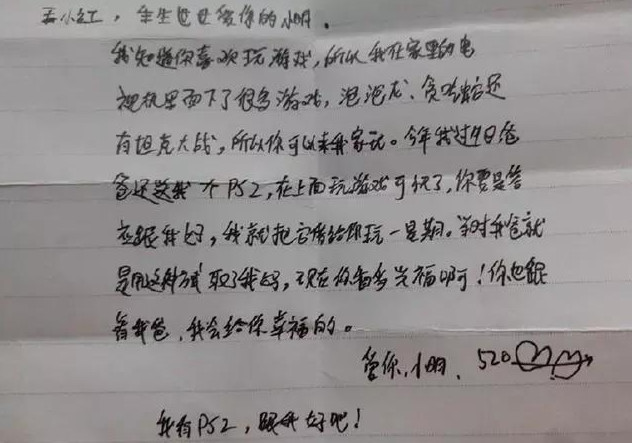 小红，生世世爱你的小明.
我知道你喜欢玩游戏，所以我在家里的电
视机里面下了很多游戏，泡泡龙、贪吃蛇还
有坦克大战，所以你可以来我家玩。今年我过生日爸
爸还送我个PS2，在上面玩游戏可快了，你要是答
应跟我好，我就把它借给你玩一星期。当时我爸就
是用这种方式取了我妈，现在你看多兴福啊！你也跟
着我爸，我会给你幸福的。
爱你，小明. 520
我有PS2，跟我好吧！